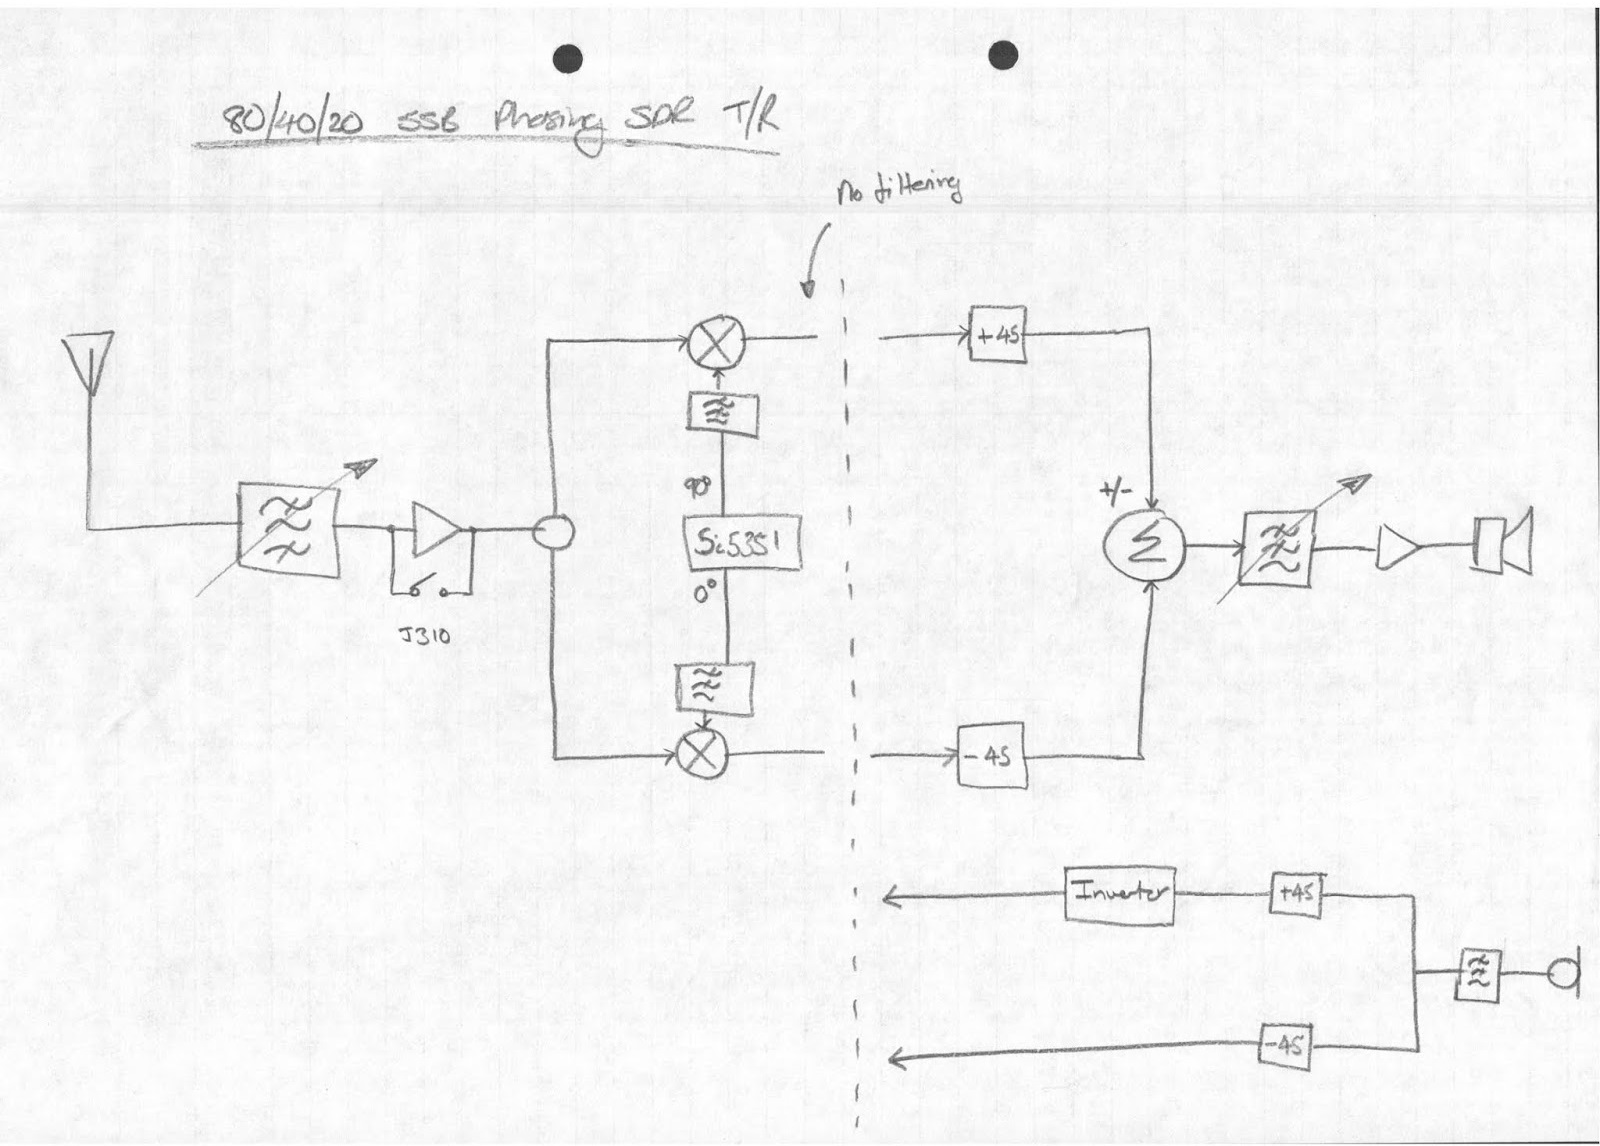 80/40/20 SSB Phasing SDR T/R
No filtering
+45
90°
+/-
Si5351
Σ
0°
J310
-45
Inverter
+45
-45